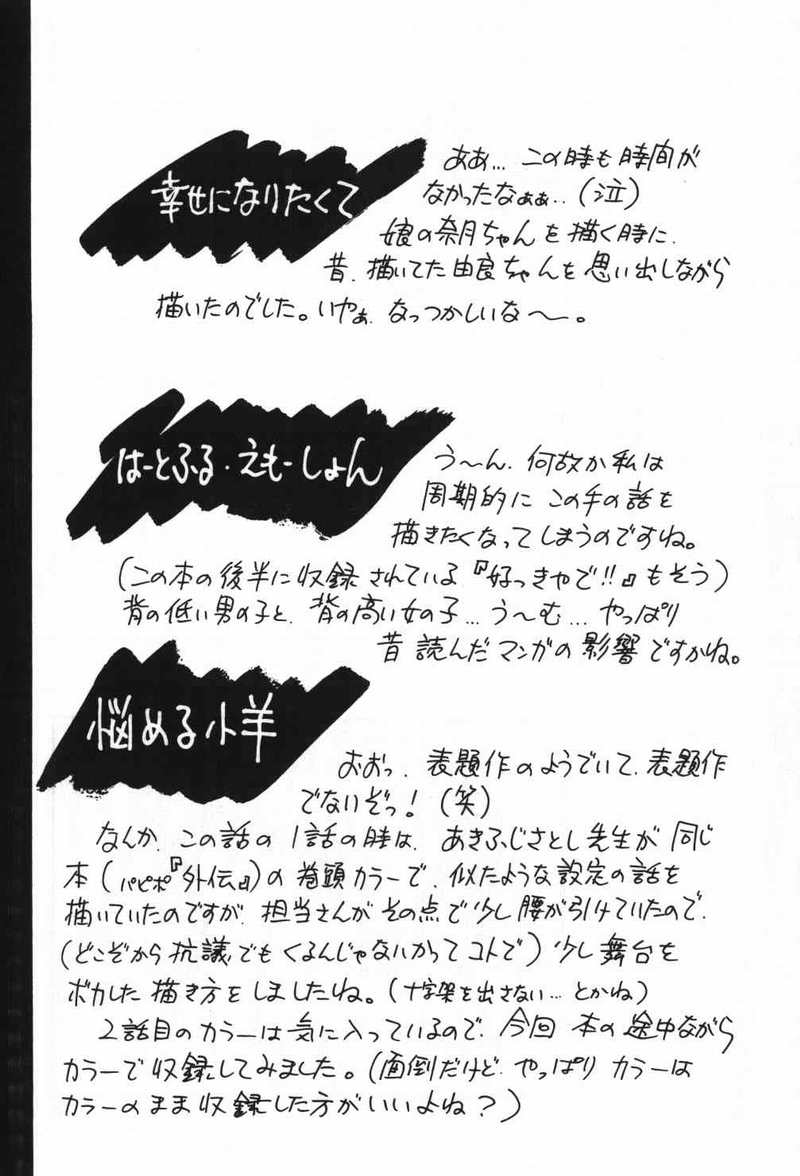 幸せになりたくて
ああ…この時も時間が
なかったなぁぁ‥(泣)
娘の奈月ちゃんを描く時に、
昔、描いてた由良ちゃんを思い出しながら
描いたのでした。いやぁ、なっつかしいな〜。
はーとふる・えもーしょん
う〜ん、何故か私は
周期的にこの手の話を
描きたくなってしまうのですね。
(この本の後半に収録されている『好っきゃで!!』もそう)
背の低い男の子と、背の高い女の子…う〜む…やっぱり
昔読んだマンガの影響ですかね。
悩める小羊
おおっ、表題作のようでいて、表題作
でないぞっ!(笑)
なんか、この話の1話の時は、あきふじさとし先生が同じ
本(パピポ『外伝』)の巻頭カラーで、似たような設定の話を
描いていたのですが、担当さんがその点で少し腰が引けていたので、
(どこぞから抗議でもくるんじゃないかってコトで)少し舞台を
ボカした描き方をしましたね。(十字架を出さない…とかね)
2話目のカラーは気に入っているので、今回本の途中ながら
カラーで収録してみました。(面倒だけど、やっぱりカラーは
カラーのまま収録した方がいいよね?)